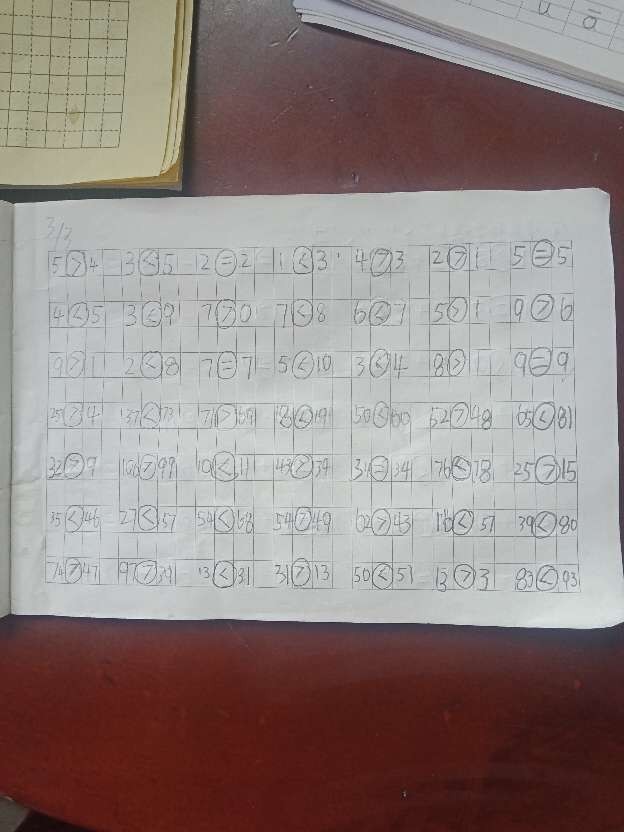 u ā
3/2
5>4 3<5 2=2 1<3 4>3 2>1 5=5
4<5 3<9 7>0 7<8 6<7 5>1 9>6
9>1 2<8 7=7 5<10 3<4 8>1 9=9
25>4 37<73 71>69 18<19 50<60 52>48 65<81
32>9 10<11 43>39 34=34 76<78 25>15
35<46 27<57 54<68 54>49 62>43 16<51 39<80
74>47 13<31 31>13 50<51 13>3 83<93